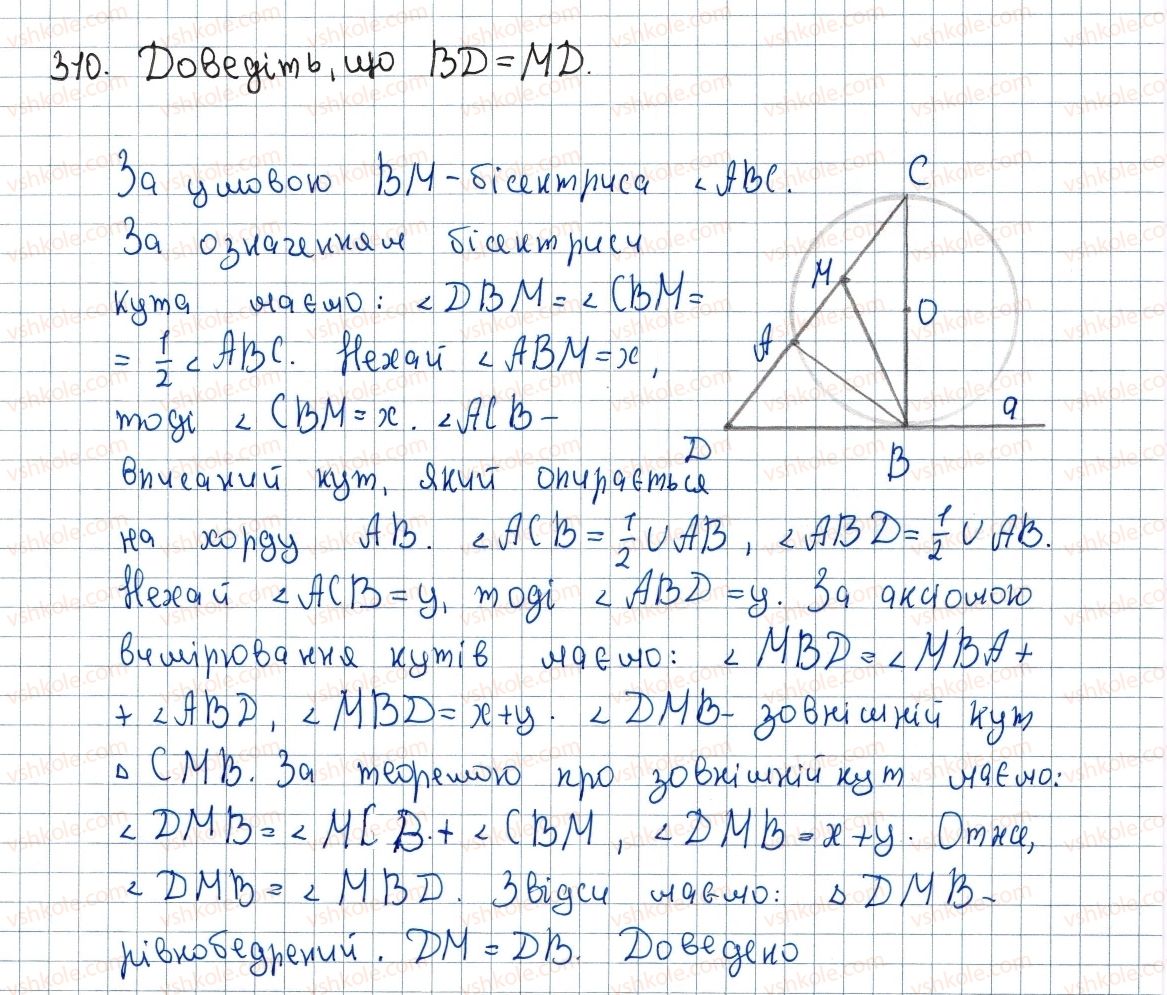 310. Доведіть, що BD = MD.
За умовою BM - бісектриса ∠ABC.
За означенням бісектриси
кута маємо: ∠DBM = ∠CBM =
= 1/2 ∠ABC. Нехай ∠ABM = x,
тоді ∠CBM = x. ∠ACB -
вписаний кут, який опирається
на хорду AB. ∠ACB = 1/2 ∪AB, ∠ABD = 1/2 ∪AB.
Нехай ∠ACB = y, тоді ∠ABD = y. За аксіомою
вимірювання кутів маємо: ∠MBD = ∠MBA +
+ ∠ABD, ∠MBD = x+y. ∠DMB - зовнішній кут
△CMB. За теоремою про зовнішній кут маємо:
∠DMB = ∠MCB + ∠CBM, ∠DMB = x+y. Отже,
∠DMB = ∠MBD. Звідси маємо: △DMB -
рівнобедрений. DM = DB. Доведено
C
M
O
A
a
D
B
vshkole.com